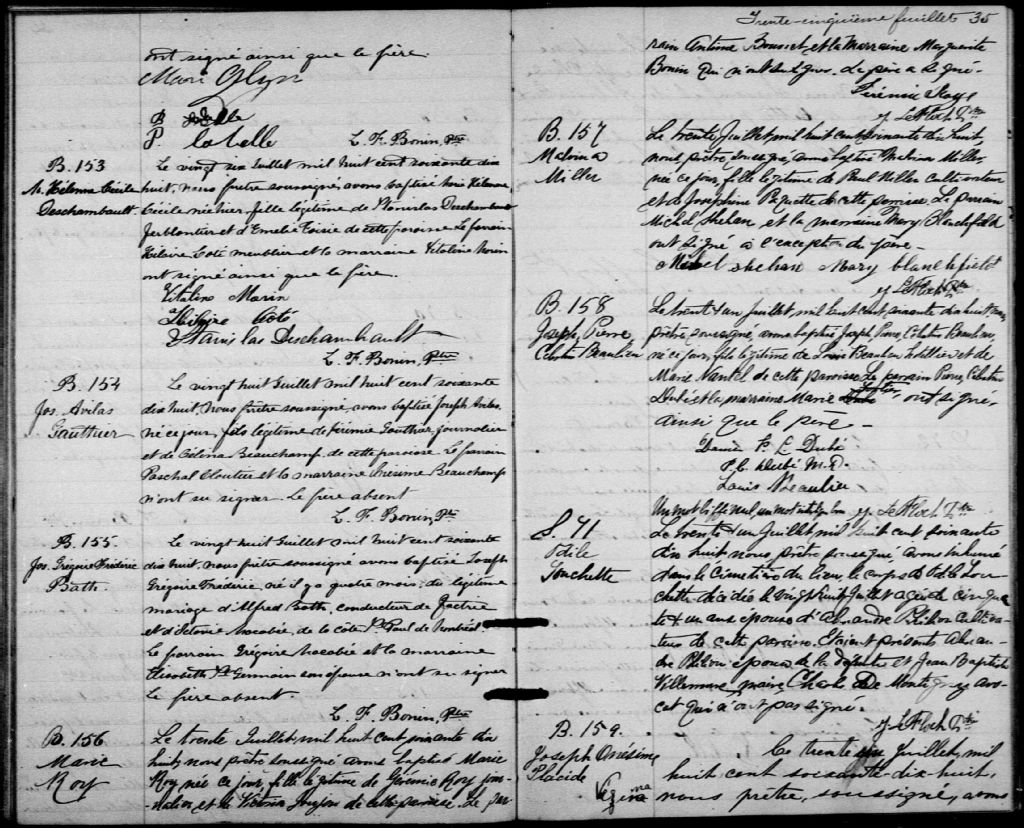 ont signé ainsi que le père.
P. Labelle
L. F. Bonin, Ptre
B. 153
M. Helonna Cécile
Deschambault.
Le vingt six Juillet mil huit cent soixante dix
huit, nous prêtre soussigné, avons baptisé
Cécile née hier fille légitime de Stanislas Deschambault
ferblantier et d'Emelie de cette paroisse Le parrain
Hilaire Coté meublier et la marraine Vitaline Morin
ont signé ainsi que le père.
Vitaline Marin
Hilaire Coté
Stanislas Deschambault
L. F. Bonin, Ptre
B. 154
Jos. Avilas
Gauthier
Le vingt huit Juillet mil huit cent soixante
dix huit, nous prêtre soussigné, avons baptisé Joseph Avilas,
né ce jour, fils légitime de Firmie Gouthier journalier
et de Célina Beauchamp de cette paroisse. Le parrain
Paschal Cloutier et la marraine Onésime Beauchamp
n'ont su signer. Le père absent
L. F. Bonin, Ptre
B. 155
Jos. Grégoire Fréderic
Bath.
Le vingt huit Juillet mil huit cent soixante
dix huit, nous prêtre soussigné avons baptisé Joseph
Grégoire Fréderic, né il y a quatre mois, du légitime
mariage d'Alfred Bath, conducteur de
et d'Octavie Macabée, de la côte St Paul de Montréal.
Le parrain Grégoire Macabée et la marraine
Elisabeth St Germain son épouse n'ont su signer
Le père absent.
L. F. Bonin, Ptre
B. 156
Marie
Roy
Le trente Juillet, mil huit cent soixante dix
huit, nous prêtre soussigné avons baptisé Marie
Roy née ce jour, fille légitime de Roy jour-
nalier, et de de cette paroisse. Le par-
Trente-cinquième feuillet 35
rain Antoine Bousset et la Marraine Marguerite
Bonin qui n'ont su signer. Le père a signé.
Roy
Y. LeFloch Ptre
B. 157
Malvina
Miller
Le trente Juillet mil huit cent soixante dix huit,
nous prêtre, soussigné, avons baptisé Malvina Miller,
née ce jour, fille légitime de Paul Miller cultivateur
et de Josephine Paquette de cette paroisse. Le parrain
Michel Shehan et la marraine Mary Blanchfield
ont signé à l'exception du père.
Michel Shehan Mary blanchfield
Y. LeFloch Ptre
B. 158
Joseph, Pierre
Célestin Beaulieu
Le trente un Juillet, mil huit cent soixante dix huit, nous,
prêtre, soussigné, avons baptisé Joseph, Pierre, Célestin Beaulieu,
né ce jour, fils légitime de Louis Beaulieu hôtellier et de
Marie Nantel de cette paroisse. Le parrain Pierre, Célestin
Dubé et la marraine Marie ont signé,
ainsi que le père.
P. C. Dubé
P. C. Dubé M.D.
Louis Beaulieu
Un mot biffé nul, un mot bon Y. LeFloch Ptre
S. 41
Odile
Touchette
Le trente un Juillet, mil huit cent soixante
dix huit nous prêtre soussigné avons inhumé
dans le cimetière du lieu, le corps de Odile Tou-
chette décédée le vingt huit Juillet agée de cinquan-
te un ans épouse d'Alexandre Philion cultiva-
teur de cette paroisse. Etaient présents Alexan-
dre Philion époux de la défunte et Jean Baptiste
Villemure, maire Charles De Montigny avo-
cat qui n'ont pas signé.
Y. LeFloch Ptre
B. 159.
Joseph Onésime
Placide
Le trente un Juillet, mil
huit cent soixante dix-huit,
nous prêtre, soussigné, avons